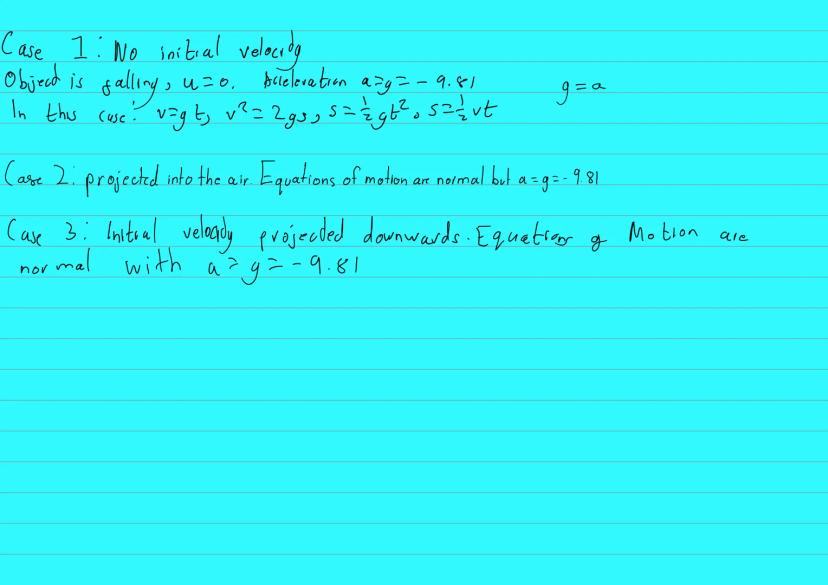 Case 1: No initial velocity
Object is falling, u=0. Acceleration a=g= -9.81
g=a
In this case: v=gt, v²=2gs, s=½gt², s=½vt
Case 2: projected into the air. Equations of motion are normal but a=g=-9.81
Case 3: Initial velocity projected downwards. Equations of Motion are
normal with a=g=-9.81